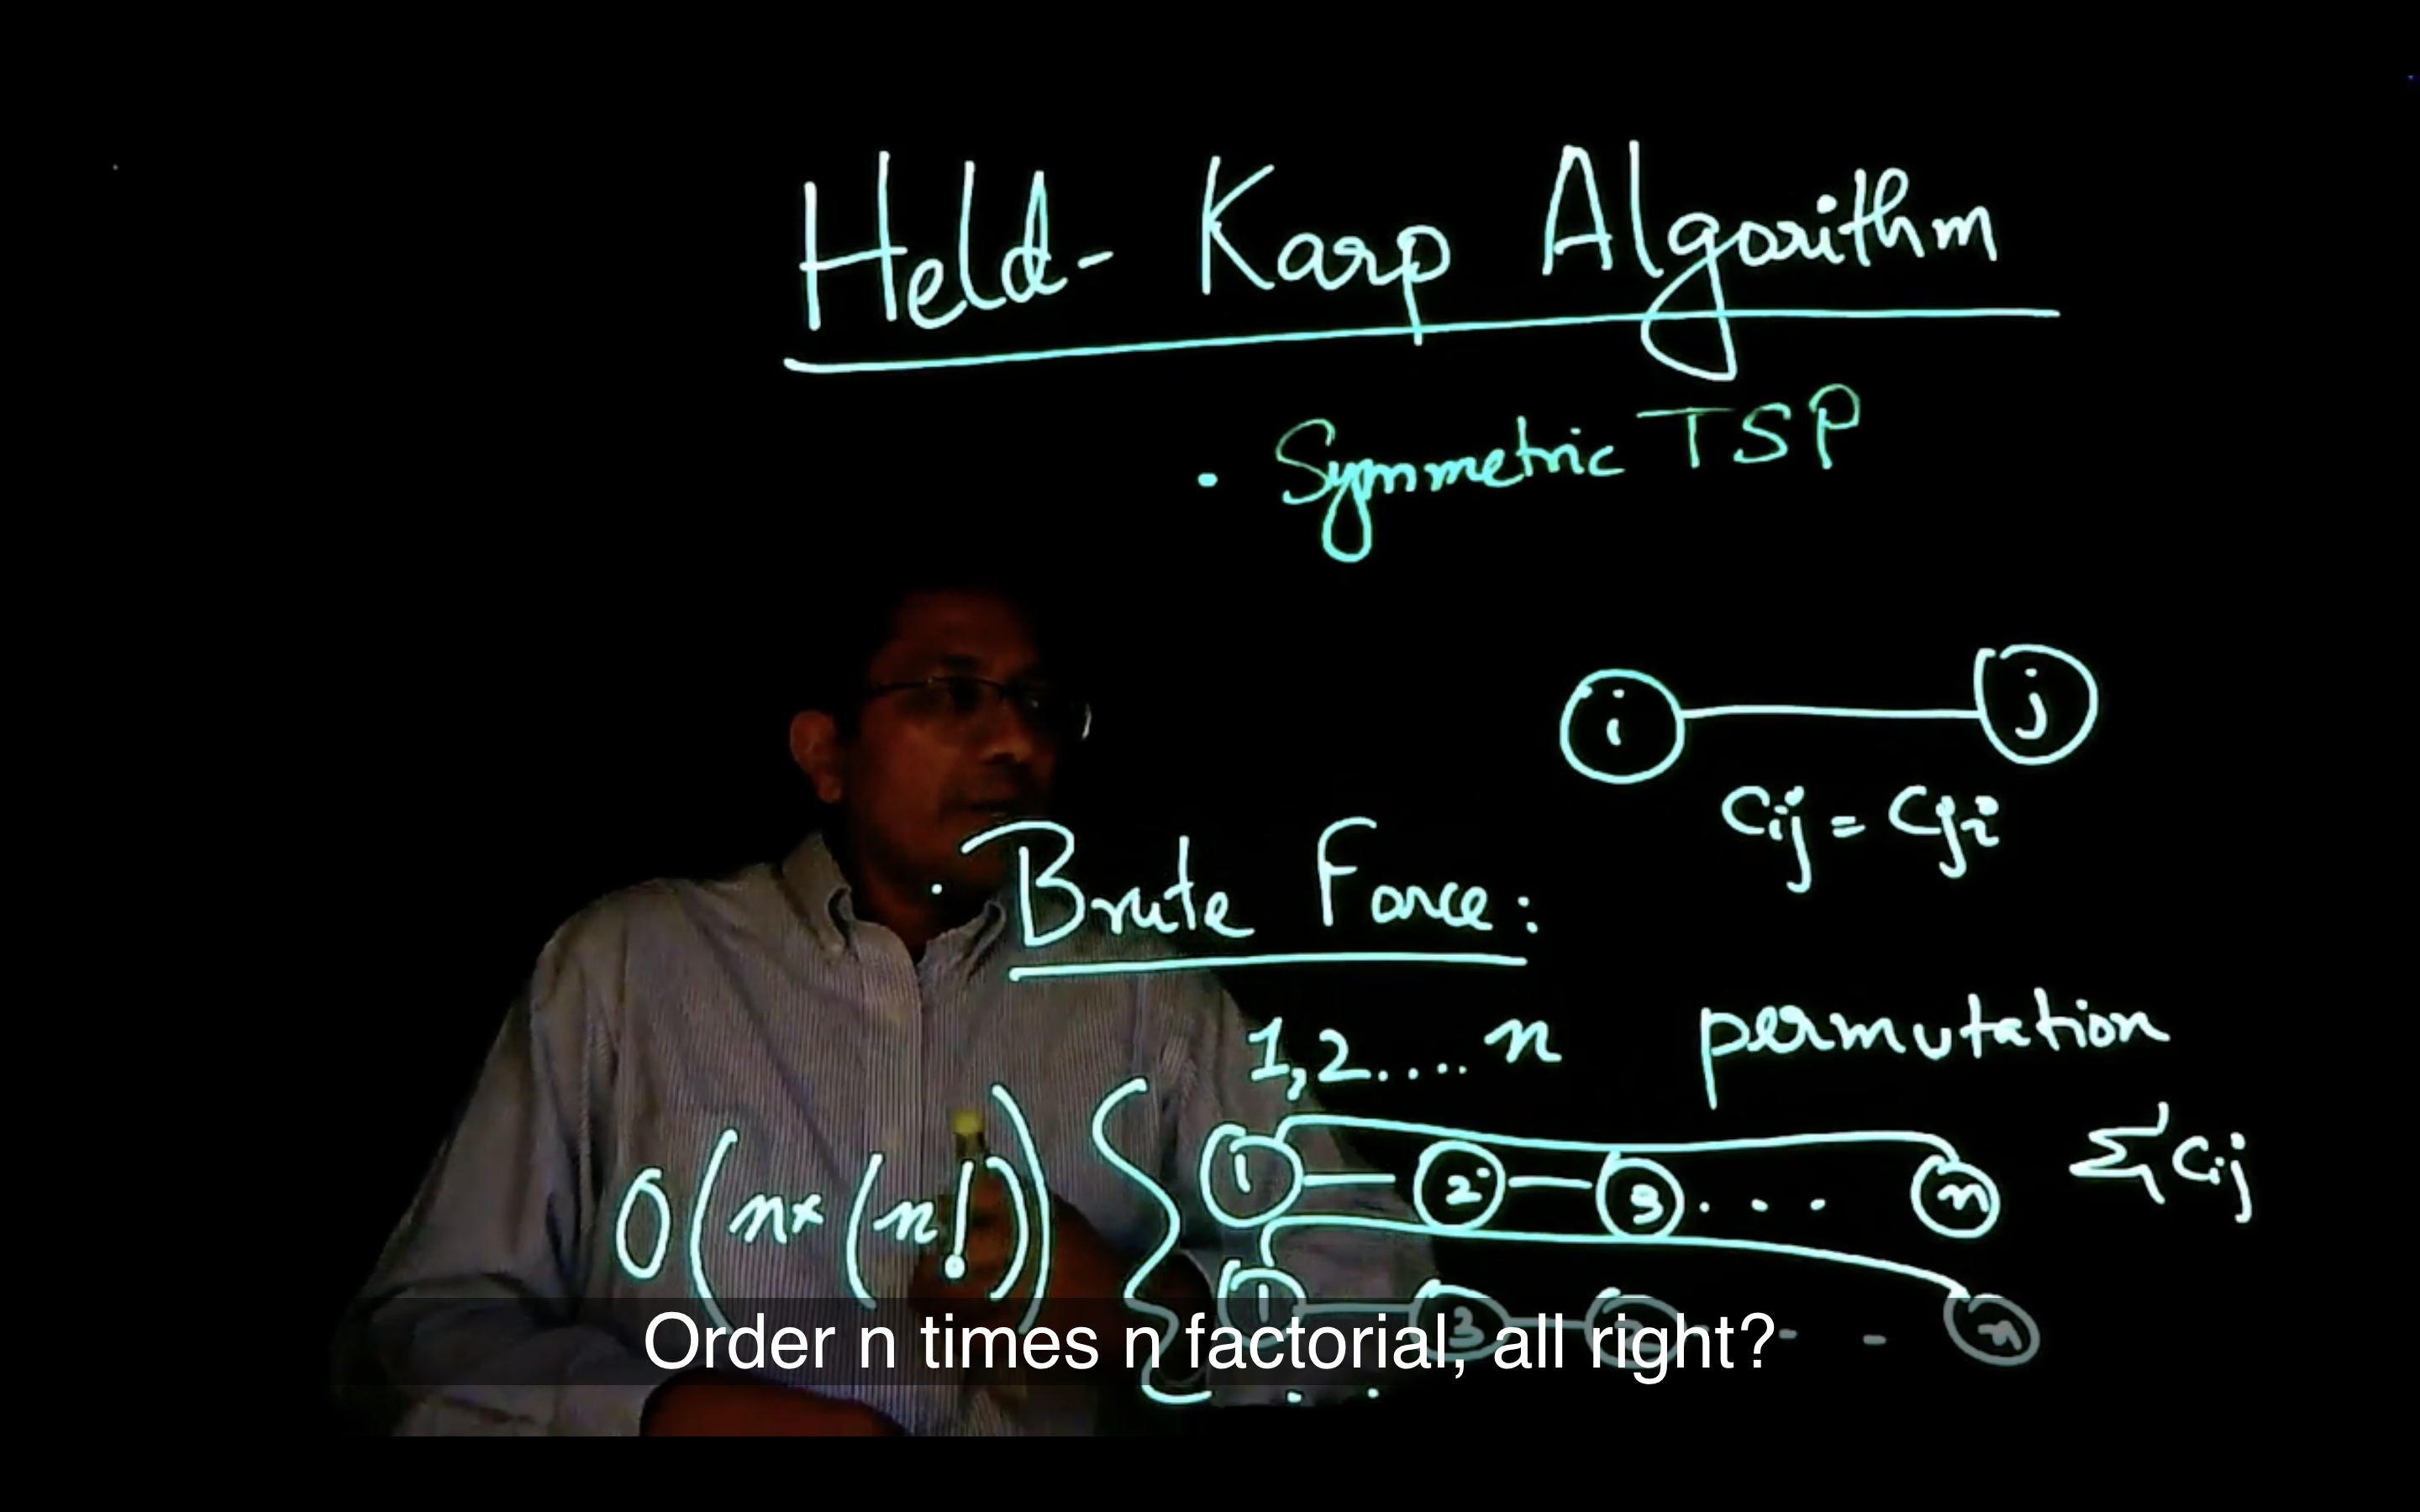 Held-Karp Algorithm
• Symmetric TSP
i j
Cij = Cji
• Brute Force:
1,2.... n permutation
O(n×(n!)) { 1 — 2 — 3 . . . n Σ Cij
1 — 3 — - - n
. .
Order n times n factorial, all right?